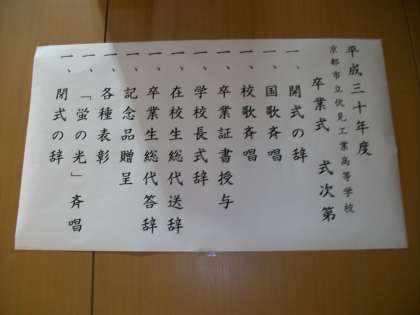 平成三十年度
京都市立伏見工業高等学校
卒業式 式次第
一、開式の辞
一、国歌斉唱
一、校歌斉唱
一、卒業証書授与
一、学校長式辞
一、在校生総代送辞
一、卒業生総代答辞
一、記念品贈呈
一、各種表彰
一、「蛍の光」斉唱
一、閉式の辞